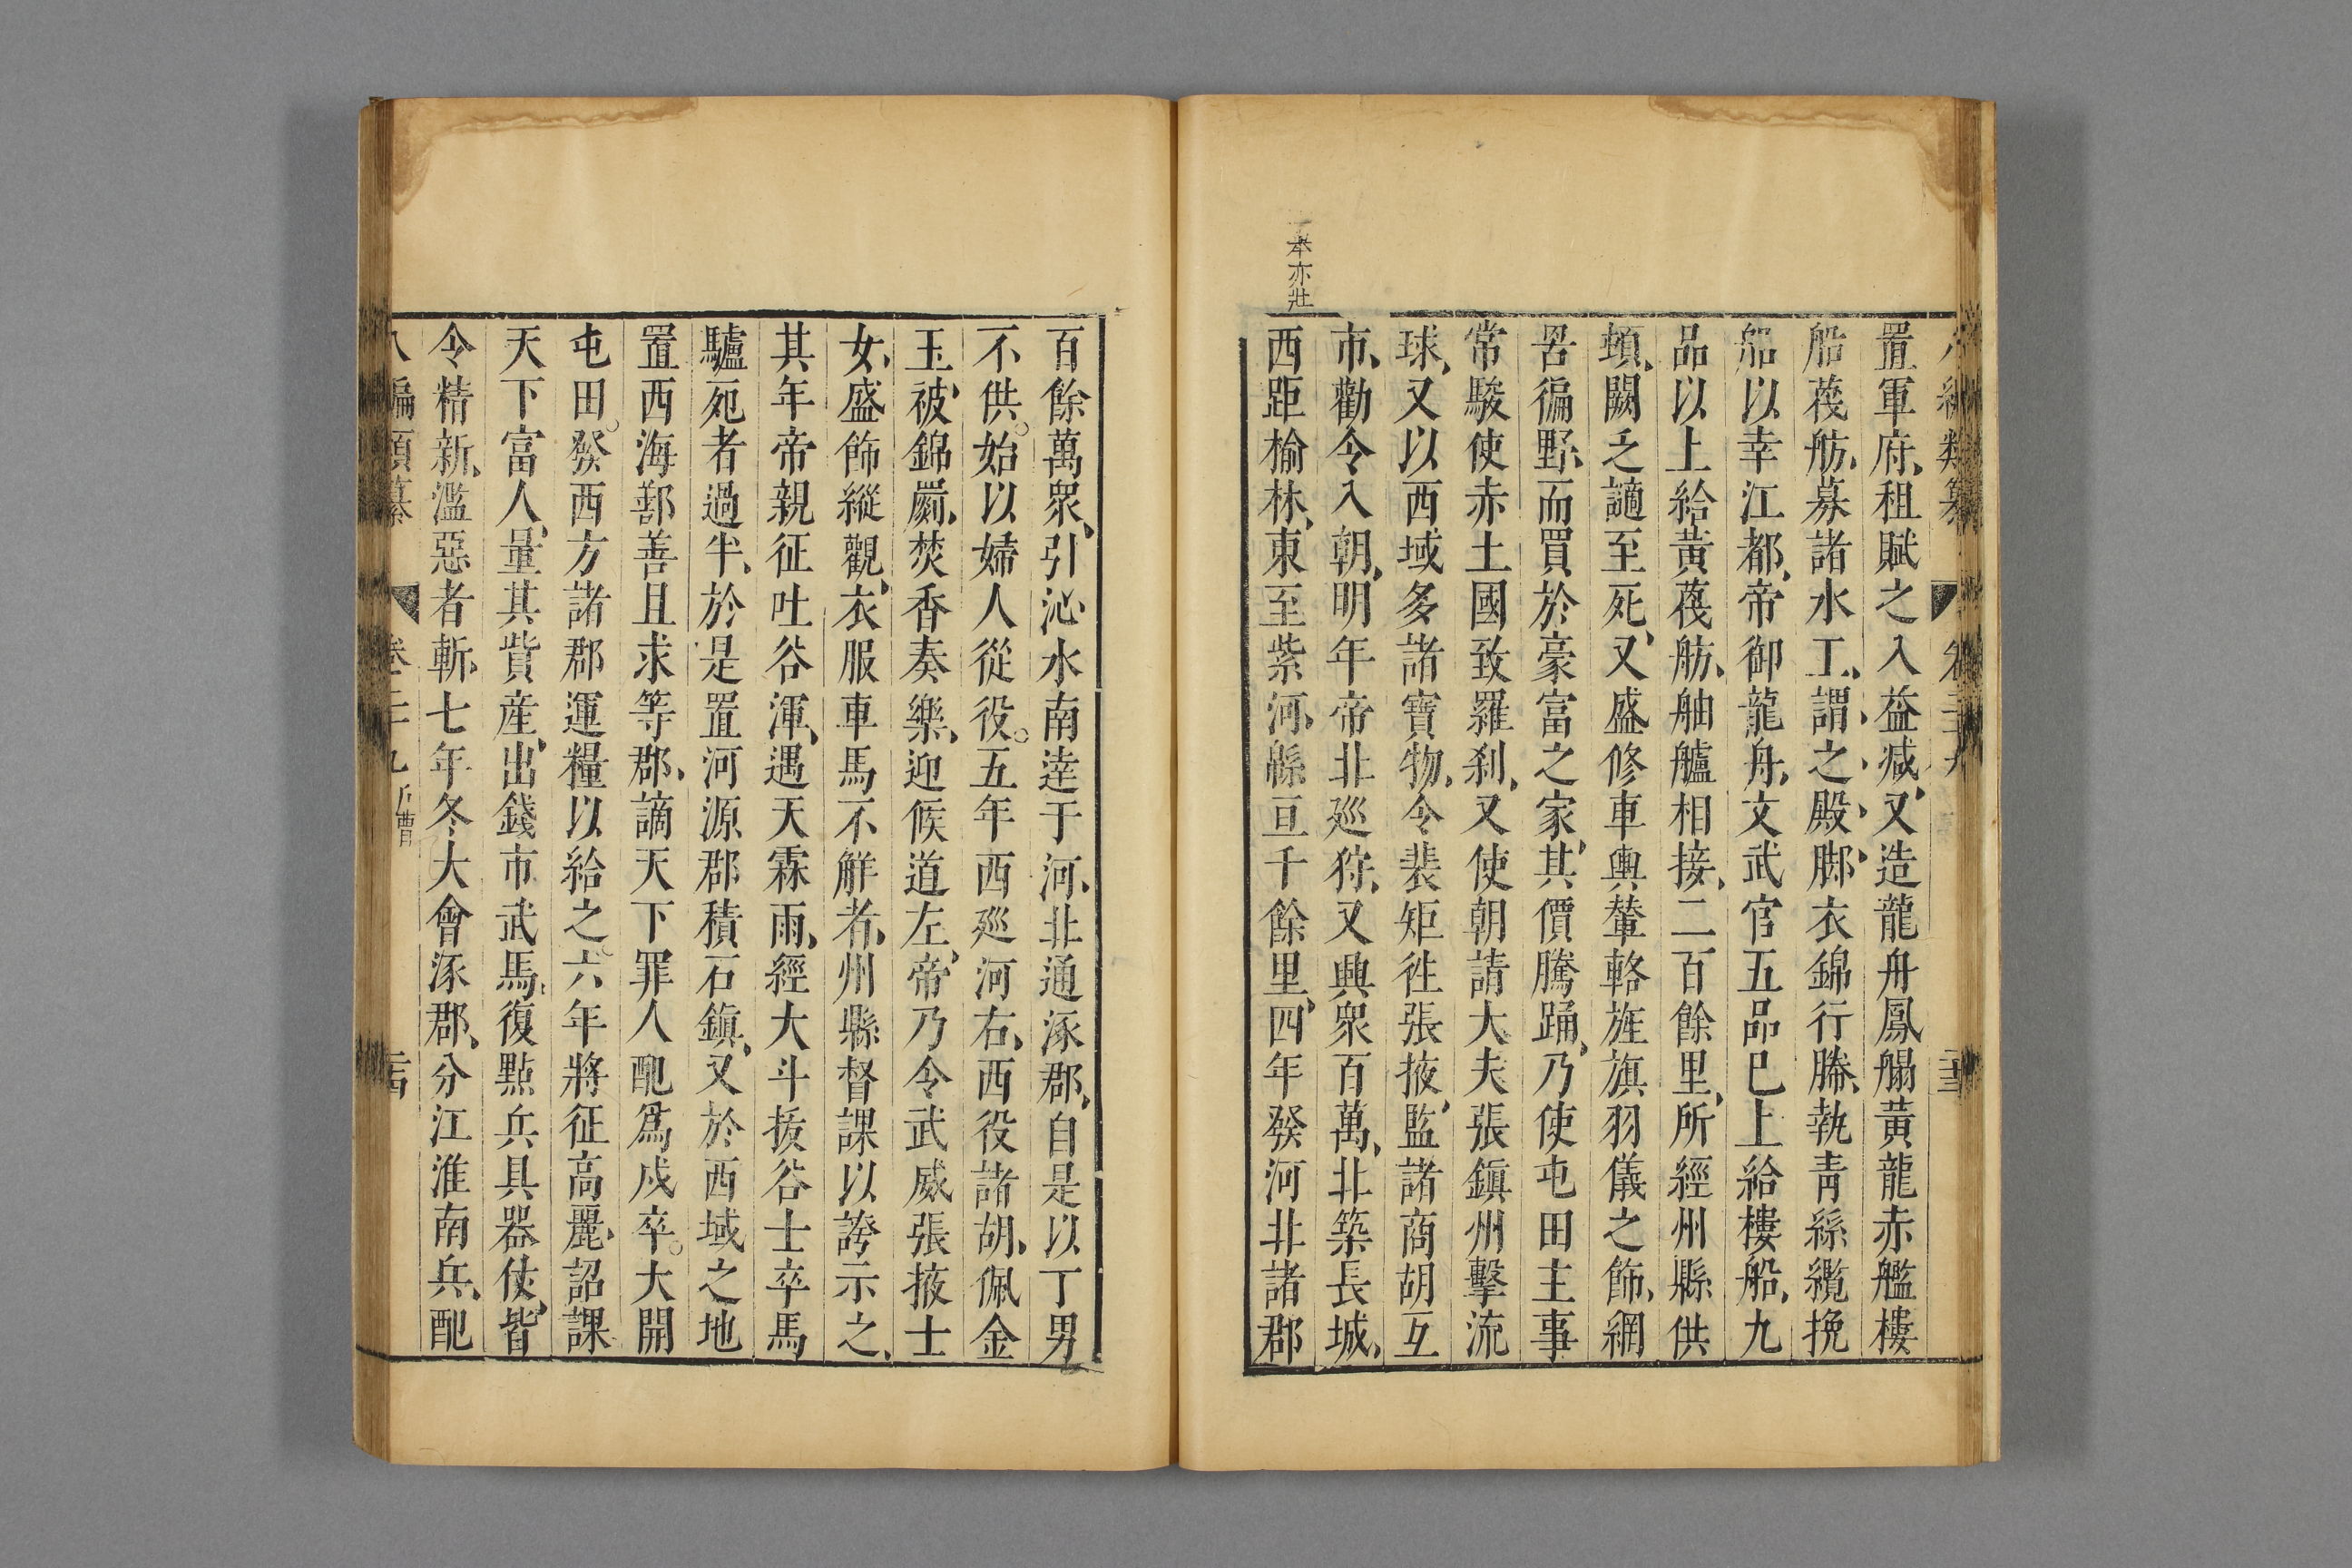 置軍府租賦之入益減又造龍舟鳳䑽黃龍赤艦樓
船䒀舫募諸水工謂之殿脚衣錦行幐執靑絲纜挽
船以幸江都帝御龍舟文武官五品巳上給樓船九
品以上給黃䒀舫舳艫相接二百餘里所經州縣供
頓闕乏讁至死又盛修車輿輦輅旌旗羽儀之飾網
罟徧野而買於豪富之家其價騰踊乃使屯田主事
常駿使赤土國致羅刹又使朝請大夫張鎭州擊流
球又以西域多諸寶物令裴矩徃張掖監諸商胡互
市勸令入朝明年帝北廵狩又興衆百萬北築長城
西距楡林東至紫河緜亘千餘里四年發河北諸郡
本亦壯
百餘萬衆引沁水南逹于河北通涿郡自是以丁男
不供始以婦人從役五年西廵河右西役諸胡佩金
玉被錦罽焚香奏樂迎候道左帝乃令武威張掖士
女盛飾縱觀衣服車馬不鮮者州縣督課以誇示之
其年帝親征吐谷渾遇天霖雨經大斗拔谷士卒馬
驢死者過半於是置河源郡積石鎭又於西域之地
置西海鄯善且末等郡謫天下罪人配爲戍卒大開
屯田發西方諸郡運糧以給之六年將征高麗詔課
天下富人量其貲産出錢市武馬復點兵具器仗皆
令精新濫惡者斬七年冬大會涿郡分江淮南兵配
八編類纂 卷二十九 戶曹